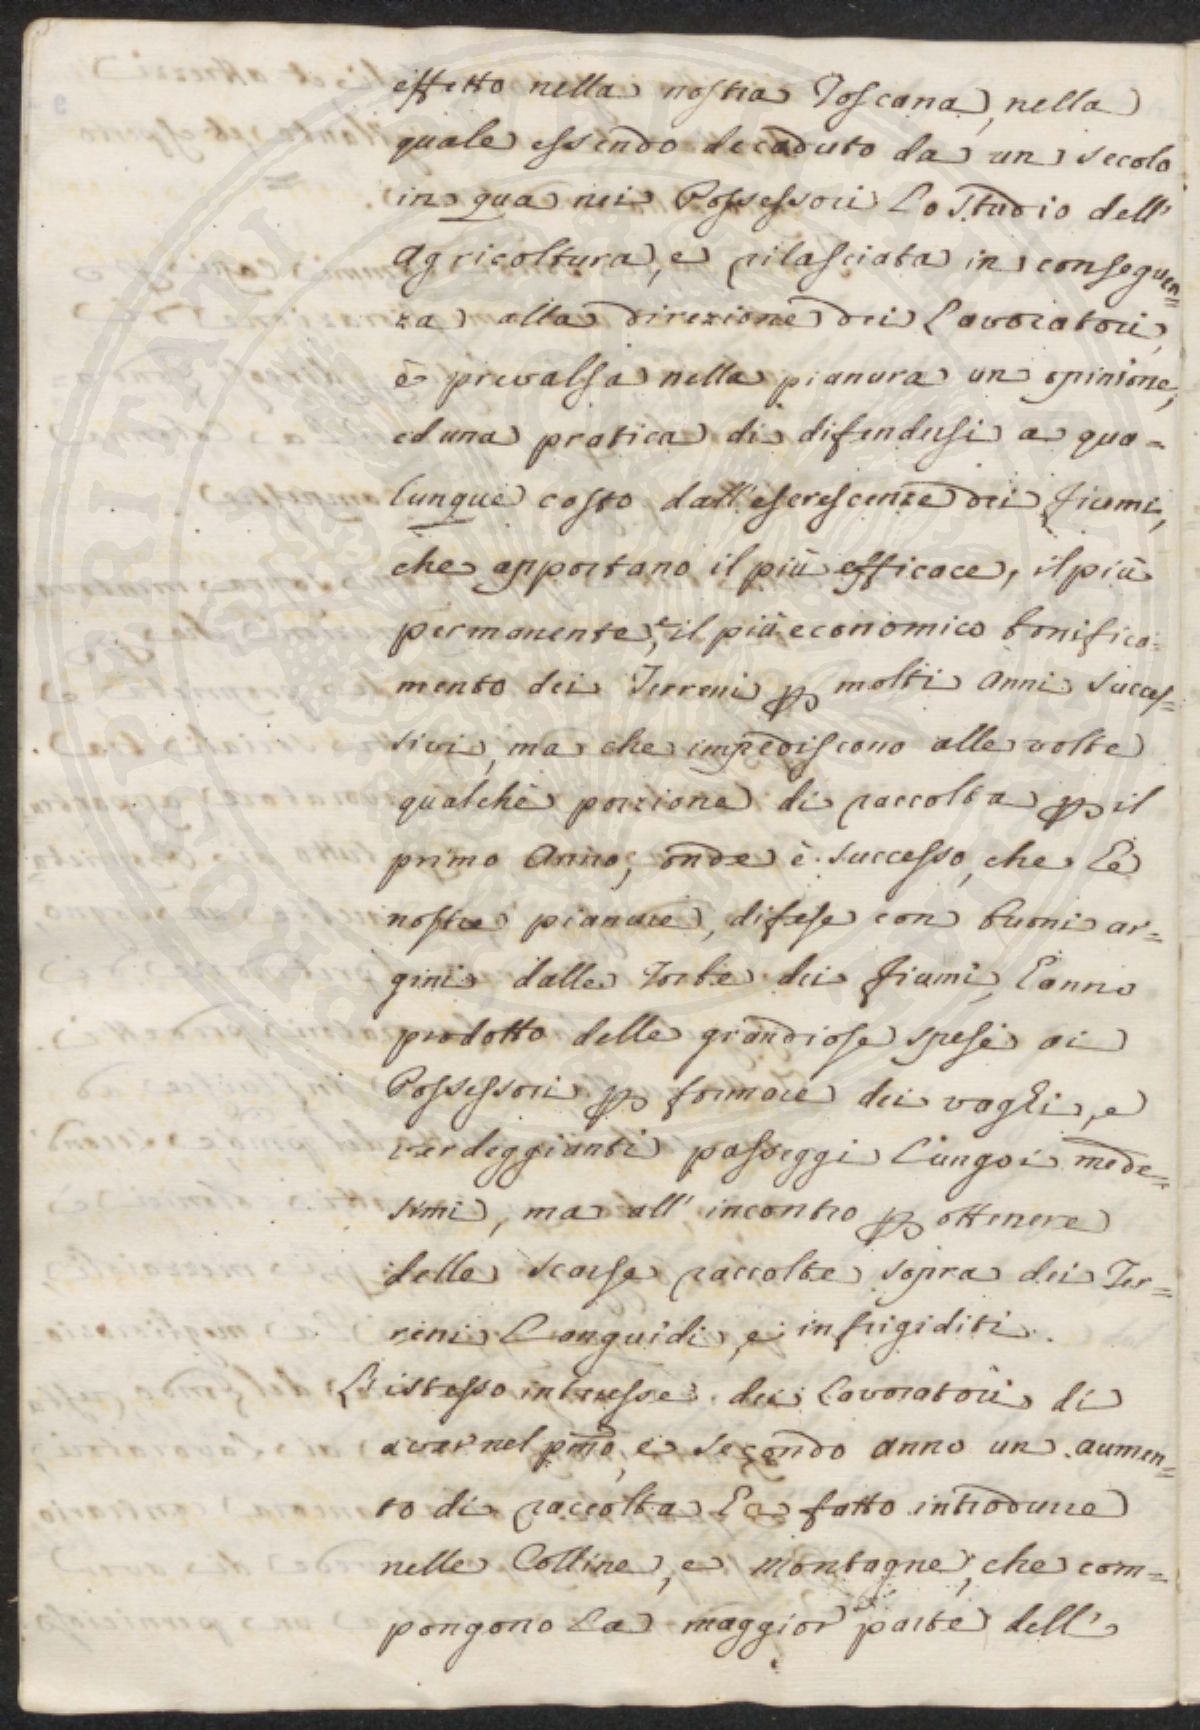 effetto nella nostra Toscana, nella
quale essendo decaduto da un secolo
in qua nei Possessori Lo Studio dell'
Agricoltura, e rilasciata in conseguen=
za alla direzione dei Lavoratori,
è prevalsa nella pianura un opinione,
ed una pratica di difendersi a qua=
lunque costo dall'escrescenze dei fiumi,
che apportano il più efficace, il più
permanente, e il più economico bonifica=
mento dei Terreni p molti Anni succes=
sivi, ma che impediscono alle volte
qualche porzione di raccolta p il
primo Anno; onde è successo, che Le
nostre pianure, difese con buoni ar=
gini dalle Torbe dei fiumi, hanno
prodotto delle grandiose spese ai
Possessori p formare dei vaghi, e
verdeggianti passeggi Lungo i mede=
simi, ma all'incontro p ottenere
delle scarse raccolte sopra dei Ter=
reni Languidi, e infrigiditi.
L'istesso interesse dei Lavoratori di
aver nel pmo, e secondo anno un aumen=
to di raccolta ha fatto introdurre
nelle Colline, e Montagne, che com=
pongono La maggior parte dell'
PROPERITATI